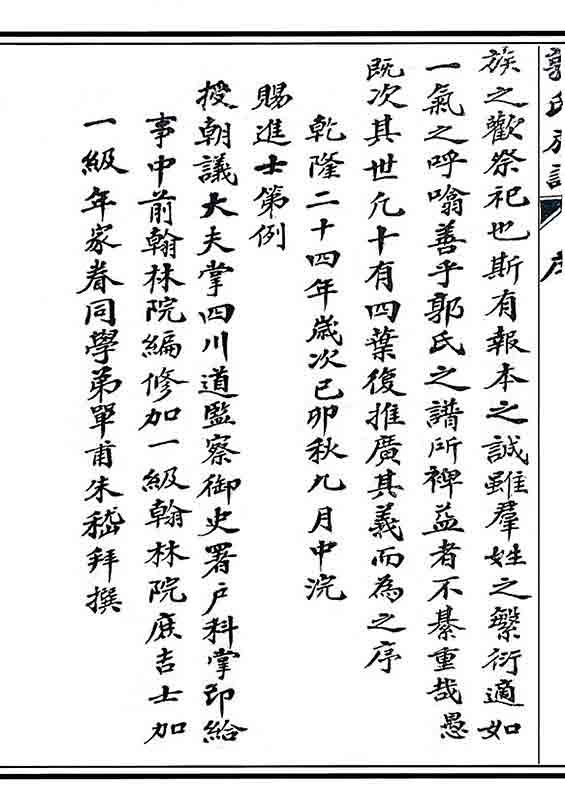 郭氏族譜 序
族之歡祭祀也斯有報本之誠雖羣姓之繁衍適如
一氣之呼噏善乎郭氏之譜所裨益者不綦重哉愚
既次其世凡十有四葉復推廣其義而為之序
乾隆二十四年歲次己卯秋九月中浣
賜進士第例
授朝議大夫掌四川道監察御史署戶科掌印給
事中前翰林院編修加一級翰林院庶吉士加
一級年家眷同學弟單甫朱嵇拜撰